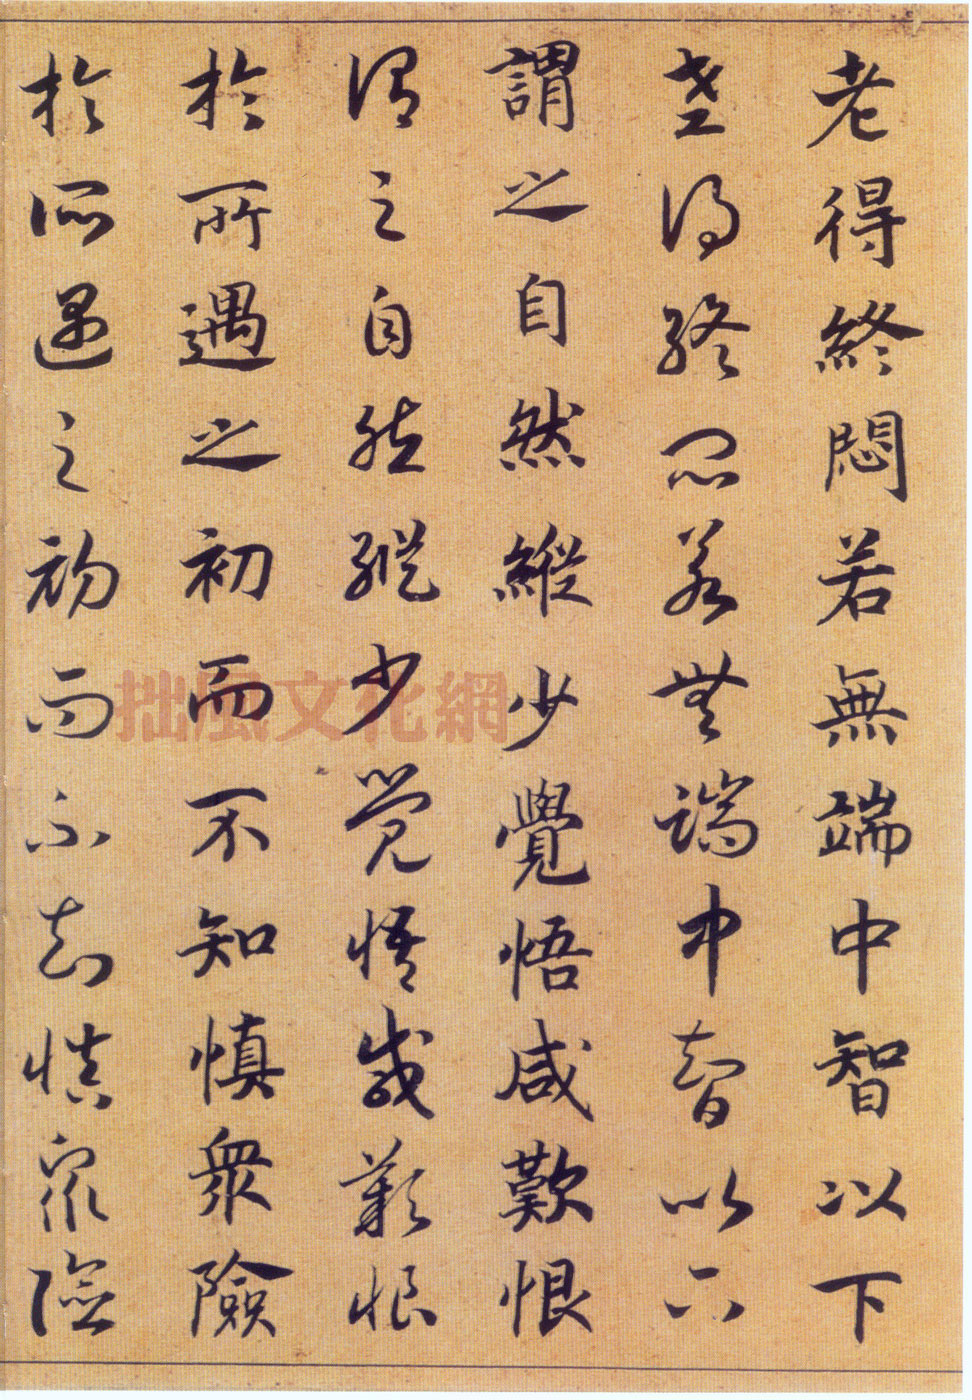 老得終悶若無端中智以下
老得終悶若無端中智以下
謂之自然縱少覺悟咸歎恨
謂之自然縱少覺悟咸歎恨
於所遇之初而不知慎衆險
於所遇之初而不知慎衆險
拙風文化網